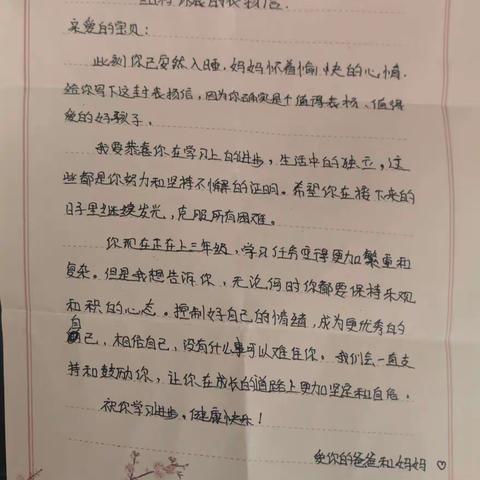 给你的表扬信
亲爱的宝贝：
此刻你已安然入睡，妈妈怀着愉快的心情，
给你写下这封表扬信，因为你确实是个值得表扬、值得
爱的好孩子。
我要恭喜你在学习上的进步，生活中的独立，这
些都是你努力和坚持不懈的证明。希望你在接下来的
日子里继续发光，克服所有困难。
你现在正在上三年级，学习任务变得更加繁重和
复杂。但是我想告诉你，无论何时你都要保持乐观
和积的心态。控制好自己的情绪，成为更优秀的
自己，相信自己，没有什么事可以难住你。我们会一直支
持和鼓励你，让你在成长的道路上更加坚定和自信。
祝你学习进步，健康快乐！
爱你的爸爸和妈妈